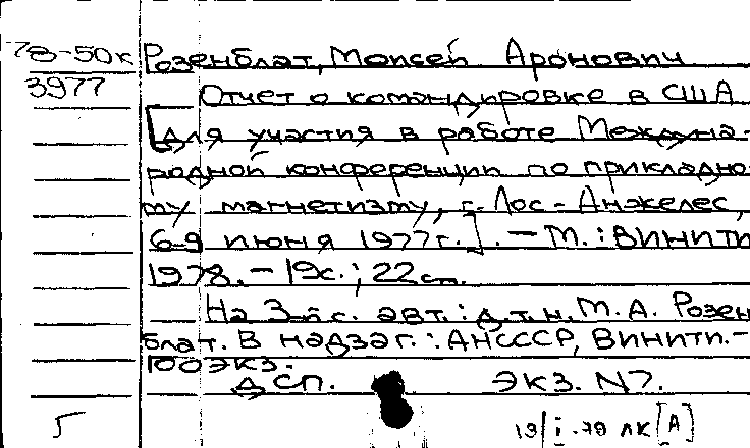 78-50к Розенблат, Моисей Аронович
3977
Отчет о командировке в США
[для участия в работе Междуна-
родной конференции по прикладно-
му магнетизму, г. Лос-Анжелес,
6-9 июня 1977г.]. – М.: ВИНИТИ
1978. – 19с.; 22см.
На 3-й с. авт.: д.т.н. М.А. Розен
блат. В надзаг.: АНСССР, ВИНИТИ.-
100экз.
ДСП. ЭКЗ. N7.
19/I-79 ЛК[А]